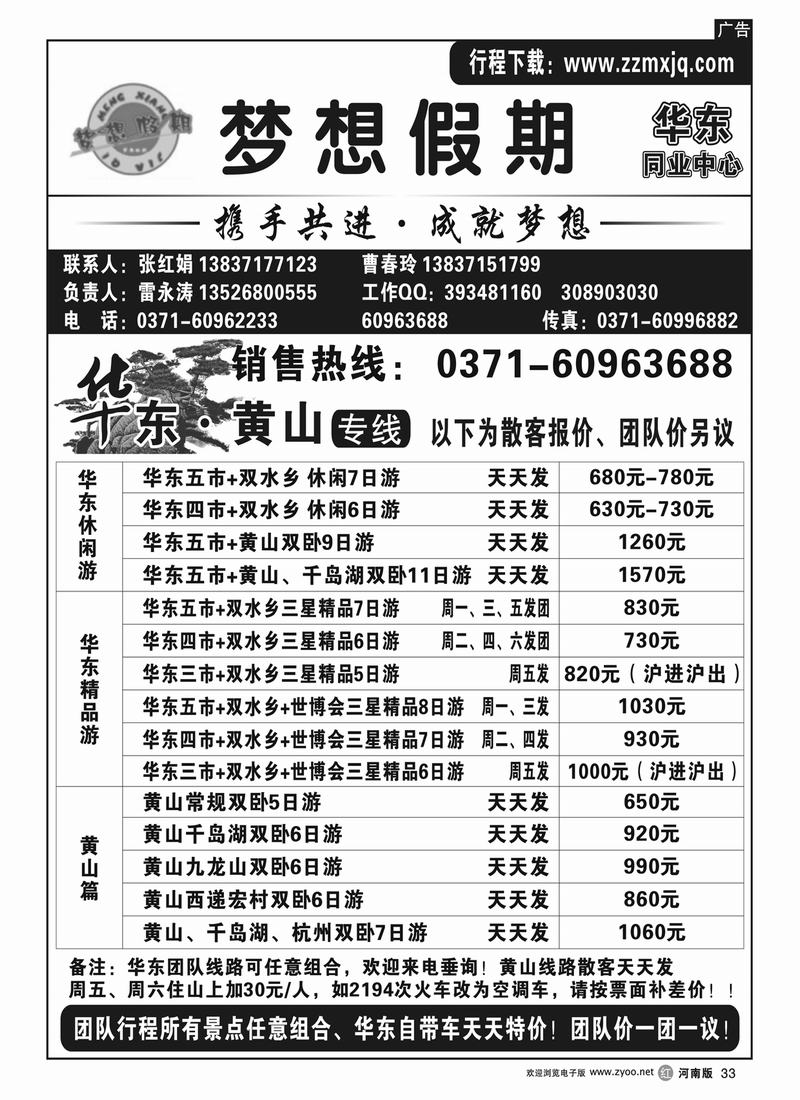 广告
行程下载：www.zzmxjq.com
MENG XIANG
梦想假期
JIA QI
梦想假期
华东
同业中心
携手共进·成就梦想
联系人：张红娟 13837177123 曹春玲 13837151799
负责人：雷永涛 13526800555 工作QQ：393481160 308903030
电 话：0371-60962233 60963688 传真：0371-60996882
销售热线：0371-60963688
华东·黄山 专线 以下为散客报价、团队价另议
华东休闲游
华东五市+双水乡 休闲7日游 天天发 680元-780元
华东四市+双水乡 休闲6日游 天天发 630元-730元
华东五市+黄山双卧9日游 天天发 1260元
华东五市+黄山、千岛湖双卧11日游 天天发 1570元
华东精品游
华东五市+双水乡三星精品7日游 周一、三、五发团 830元
华东四市+双水乡三星精品6日游 周二、四、六发团 730元
华东三市+双水乡三星精品5日游 周五发 820元（沪进沪出）
华东五市+双水乡+世博会三星精品8日游 周一、三发 1030元
华东四市+双水乡+世博会三星精品7日游 周二、四发 930元
华东三市+双水乡+世博会三星精品6日游 周五发 1000元（沪进沪出）
黄山篇
黄山常规双卧5日游 天天发 650元
黄山千岛湖双卧6日游 天天发 920元
黄山九龙山双卧6日游 天天发 990元
黄山西递宏村双卧6日游 天天发 860元
黄山、千岛湖、杭州双卧7日游 天天发 1060元
备注：华东团队线路可任意组合，欢迎来电垂询！黄山线路散客天天发
周五、周六住山上加30元/人，如2194次火车改为空调车，请按票面补差价！！
团队行程所有景点任意组合、华东自带车天天特价！团队价一团一议！
欢迎浏览电子版 www.zyoo.net 红 河南版 33